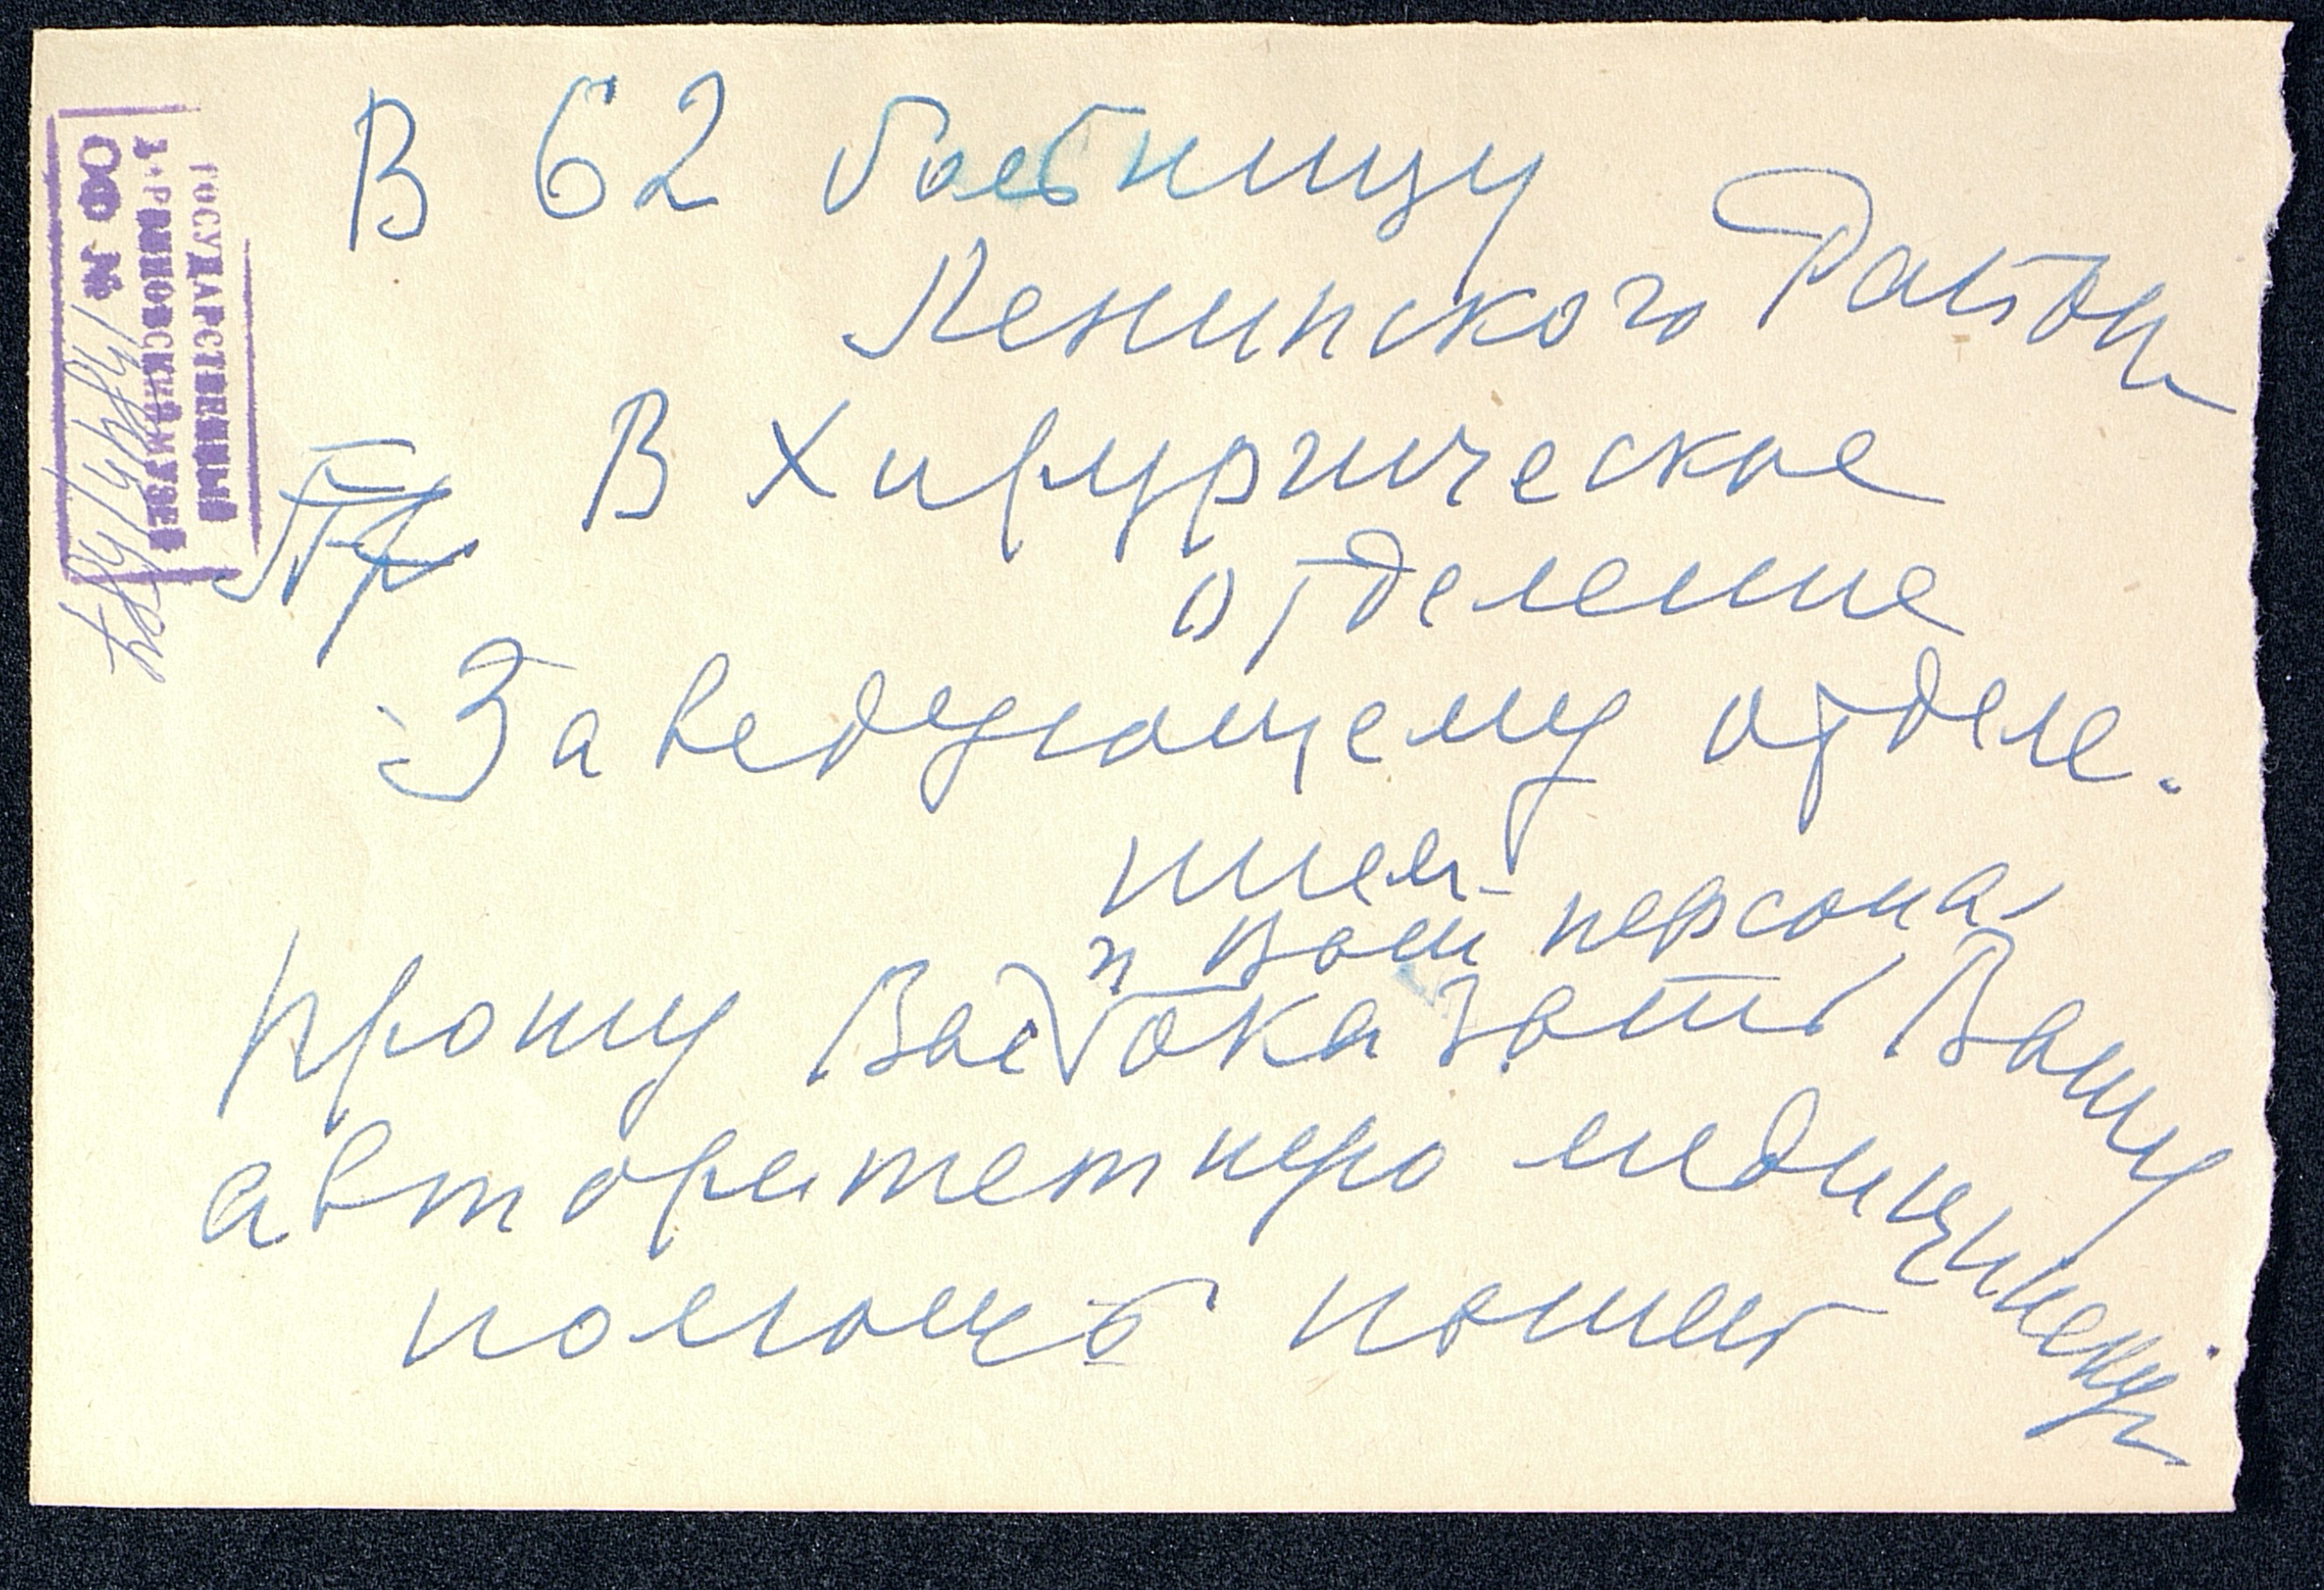 ГОСУДАРСТВЕННЫЙ
МУЗЕЙ
ОФ №
В 62 больницу
Ленинского Района
В Хирургическое
отделение
Заведующему отделе-
нием
и Ваш персонал
прошу Вас оказать Вашу
авторитетную медицинскую
помощь нашей